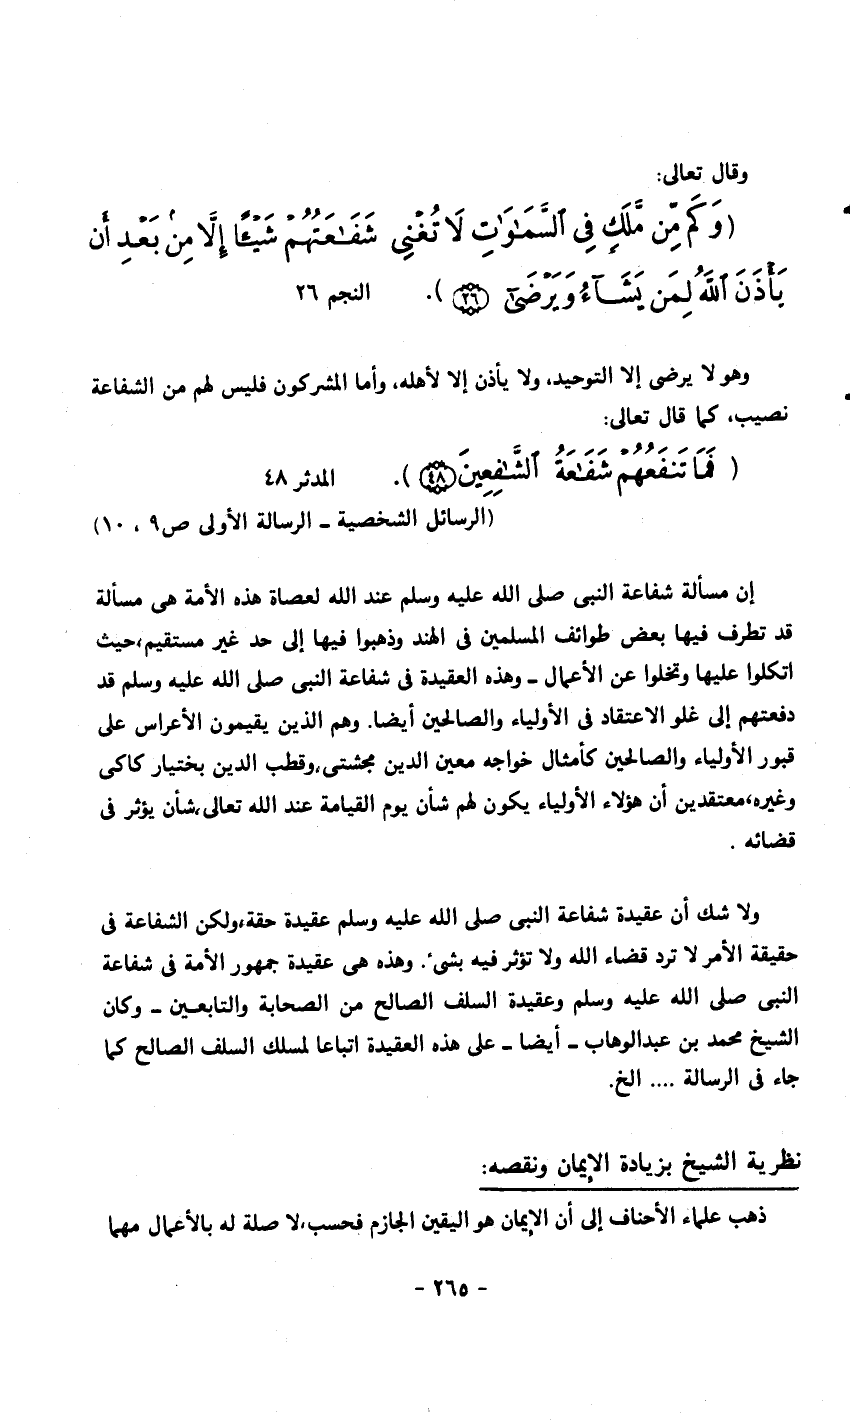 وقال تعالى:
(وَكَم مِّن مَّلَكٍ فِي ٱلسَّمَـٰوَٰتِ لَا تُغْنِي شَفَـٰعَتُهُمْ شَيْـًٔا إِلَّا مِنۢ بَعْدِ أَن
يَأْذَنَ ٱللَّهُ لِمَن يَشَآءُ وَيَرْضَىٰٓ ٢٦ ). النجم ٢٦
وهو لا يرضى إلا التوحيد، ولا يأذن إلا لأهله، وأما المشركون فليس لهم من الشفاعة
نصيب، كما قال تعالى:
( فَمَا تَنفَعُهُمْ شَفَـٰعَةُ ٱلشَّـٰفِعِينَ ٤٨ ). المدثر ٤٨
(الرسائل الشخصية ـ الرسالة الأولى ص٩ ، ١٠)
إن مسألة شفاعة النبى صلى الله عليه وسلم عند الله لعصاة هذه الأمة هى مسألة
قد تطرف فيها بعض طوائف المسلمين فى الهند وذهبوا فيها إلى حد غير مستقيم،حيث
اتكلوا عليها وتخلوا عن الأعمال ـ وهذه العقيدة فى شفاعة النبى صلى الله عليه وسلم قد
دفعتهم إلى غلو الاعتقاد فى الأولياء والصالحين أيضا. وهم الذين يقيمون الأعراس على
قبور الأولياء والصالحين كأمثال خواجه معين الدين مجشتى،وقطب الدين بختيار كاكى
وغيره،معتقدين أن هؤلاء الأولياء يكون لهم شأن يوم القيامة عند الله تعالى،شأن يؤثر فى
قضائه .
ولا شك أن عقيدة شفاعة النبى صلى الله عليه وسلم عقيدة حقة،ولكن الشفاعة فى
حقيقة الأمر لا ترد قضاء الله ولا تؤثر فيه بشىء. وهذه هى عقيدة جمهور الأمة فى شفاعة
النبى صلى الله عليه وسلم وعقيدة السلف الصالح من الصحابة والتابعين ـ وكان
الشيخ محمد بن عبدالوهاب ـ أيضا ـ على هذه العقيدة اتباعا لمسلك السلف الصالح كما
جاء فى الرسالة .... الخ.
نظرية الشيخ بزيادة الإيمان ونقصه:
ذهب علماء الأحناف إلى أن الإيمان هو اليقين الجازم فحسب،لا صلة له بالأعمال مهما
- ٢٦٥ -